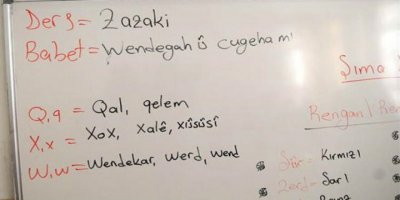 Ders = Zazaki
Babet = Wendegah û cugeha mi
Sıma
Q,q = Qal, qelem
X,x = Xox, Xalê, xısûsî
W,w = Wendekar, Werd, Wend
Rengan
Sûr = Kırmızı
Zerd = Sarı